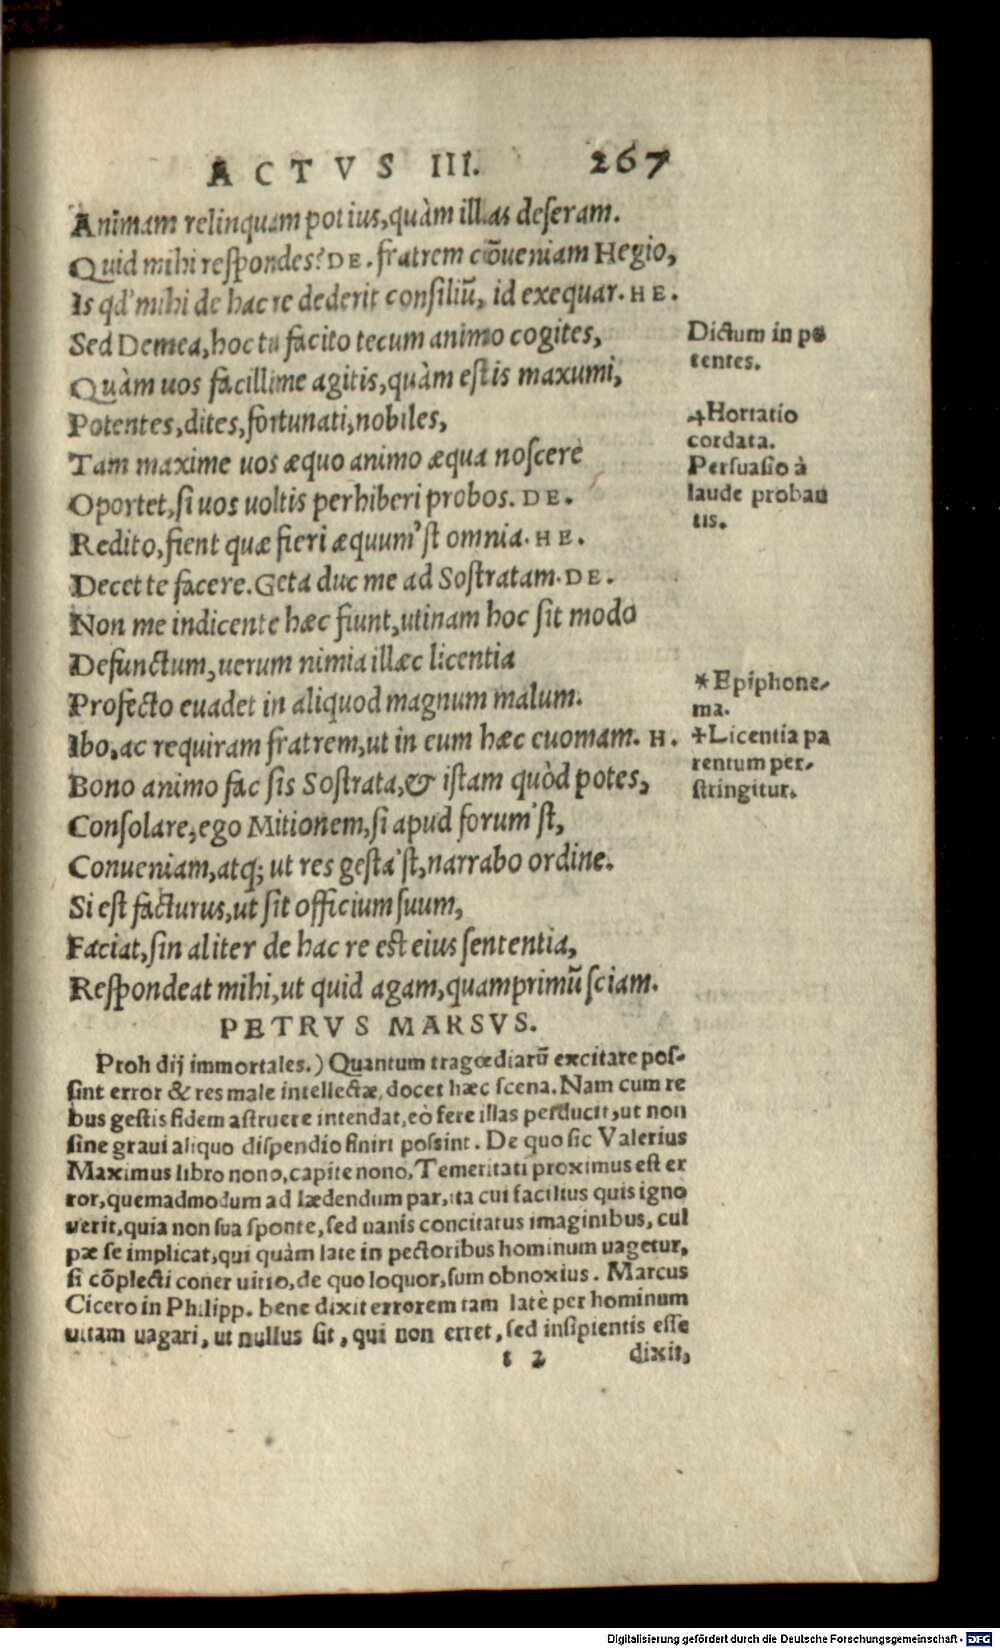 ACTVS III. 267
Animam relinquam potius, quàm illas deseram.
Quid mihi respondes? DE. fratrem cōueniam Hegio,
Is qd' mihi de hac re dederit consiliū, id exequar. HE.
Sed Demea, hoc tu facito tecum animo cogites,
Quàm uos facillime agitis, quàm estis maxumi,
Potentes, dites, fortunati, nobiles,
Tam maxime uos æquo animo æqua noscere
Oportet, si uos uoltis perhiberi probos. DE.
Redito, fient quæ fieri æquum'st omnia. HE.
Decet te facere. Geta duc me ad Sostratam. DE.
Non me indicente hæc fiunt, utinam hoc sit modo
Defunctum, uerum nimia illæc licentia
Profecto euadet in aliquod magnum malum.
Ibo, ac requiram fratrem, ut in eum hæc euomam. H.
Bono animo fac sis Sostrata, & istam quòd potes,
Consolare, ego Mitionem, si apud forum'st,
Conueniam, atq; ut res gesta'st, narrabo ordine.
Si est facturus, ut sit officium suum,
Faciat, sin aliter de hac re est eius sententia,
Respondeat mihi, ut quid agam, quamprimū sciam.
Dictum in po
tentes.
⁜Hortatio
cordata.
Persuasio à
laude proban
tis.
*Epiphone-
ma.
⁜Licentia pa
rentum per-
stringitur.
PETRVS MARSVS.
Proh dij immortales.) Quantum tragœdiarū excitare pos-
sint error & res male intellectæ, docet hæc scena. Nam cum re
bus gestis fidem astruere intendat, eò fere illas perducit, ut non
sine graui aliquo dispendio finiri possint. De quo sic Valerius
Maximus libro nono, capite nono, Temeritati proximus est er
ror, quemadmodum ad lædendum par, ita cui facilius quis igno
uerit, quia non sua sponte, sed uanis concitatus imaginibus, cul
pæ se implicat, qui quàm late in pectoribus hominum uagetur,
si cōplecti coner uitio, de quo loquor, sum obnoxius. Marcus
Cicero in Philipp. bene dixit errorem tam latè per hominum
uitam uagari, ut nullus sit, qui non erret, sed insipientis esse
t 2 dixit,
Digitalisierung gefördert durch die Deutsche Forschungsgemeinschaft - DFG